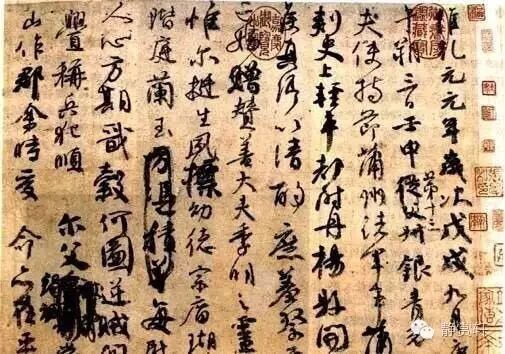 維乾元元年歲次戊戌九月
午朔三日壬申第十三從父叔銀青光
夫使持節蒲州諸軍事蒲
刺史上輕車都尉丹楊縣開國
侯真卿以清酌庶羞祭
亡姪贈贊善大夫季明之靈
惟爾挺生夙標幼德宗廟瑚
階庭蘭玉方憑積善每慰
人心方期戩穀何圖逆賊
釁稱兵犯順爾父
山作郡余時受命亦在平